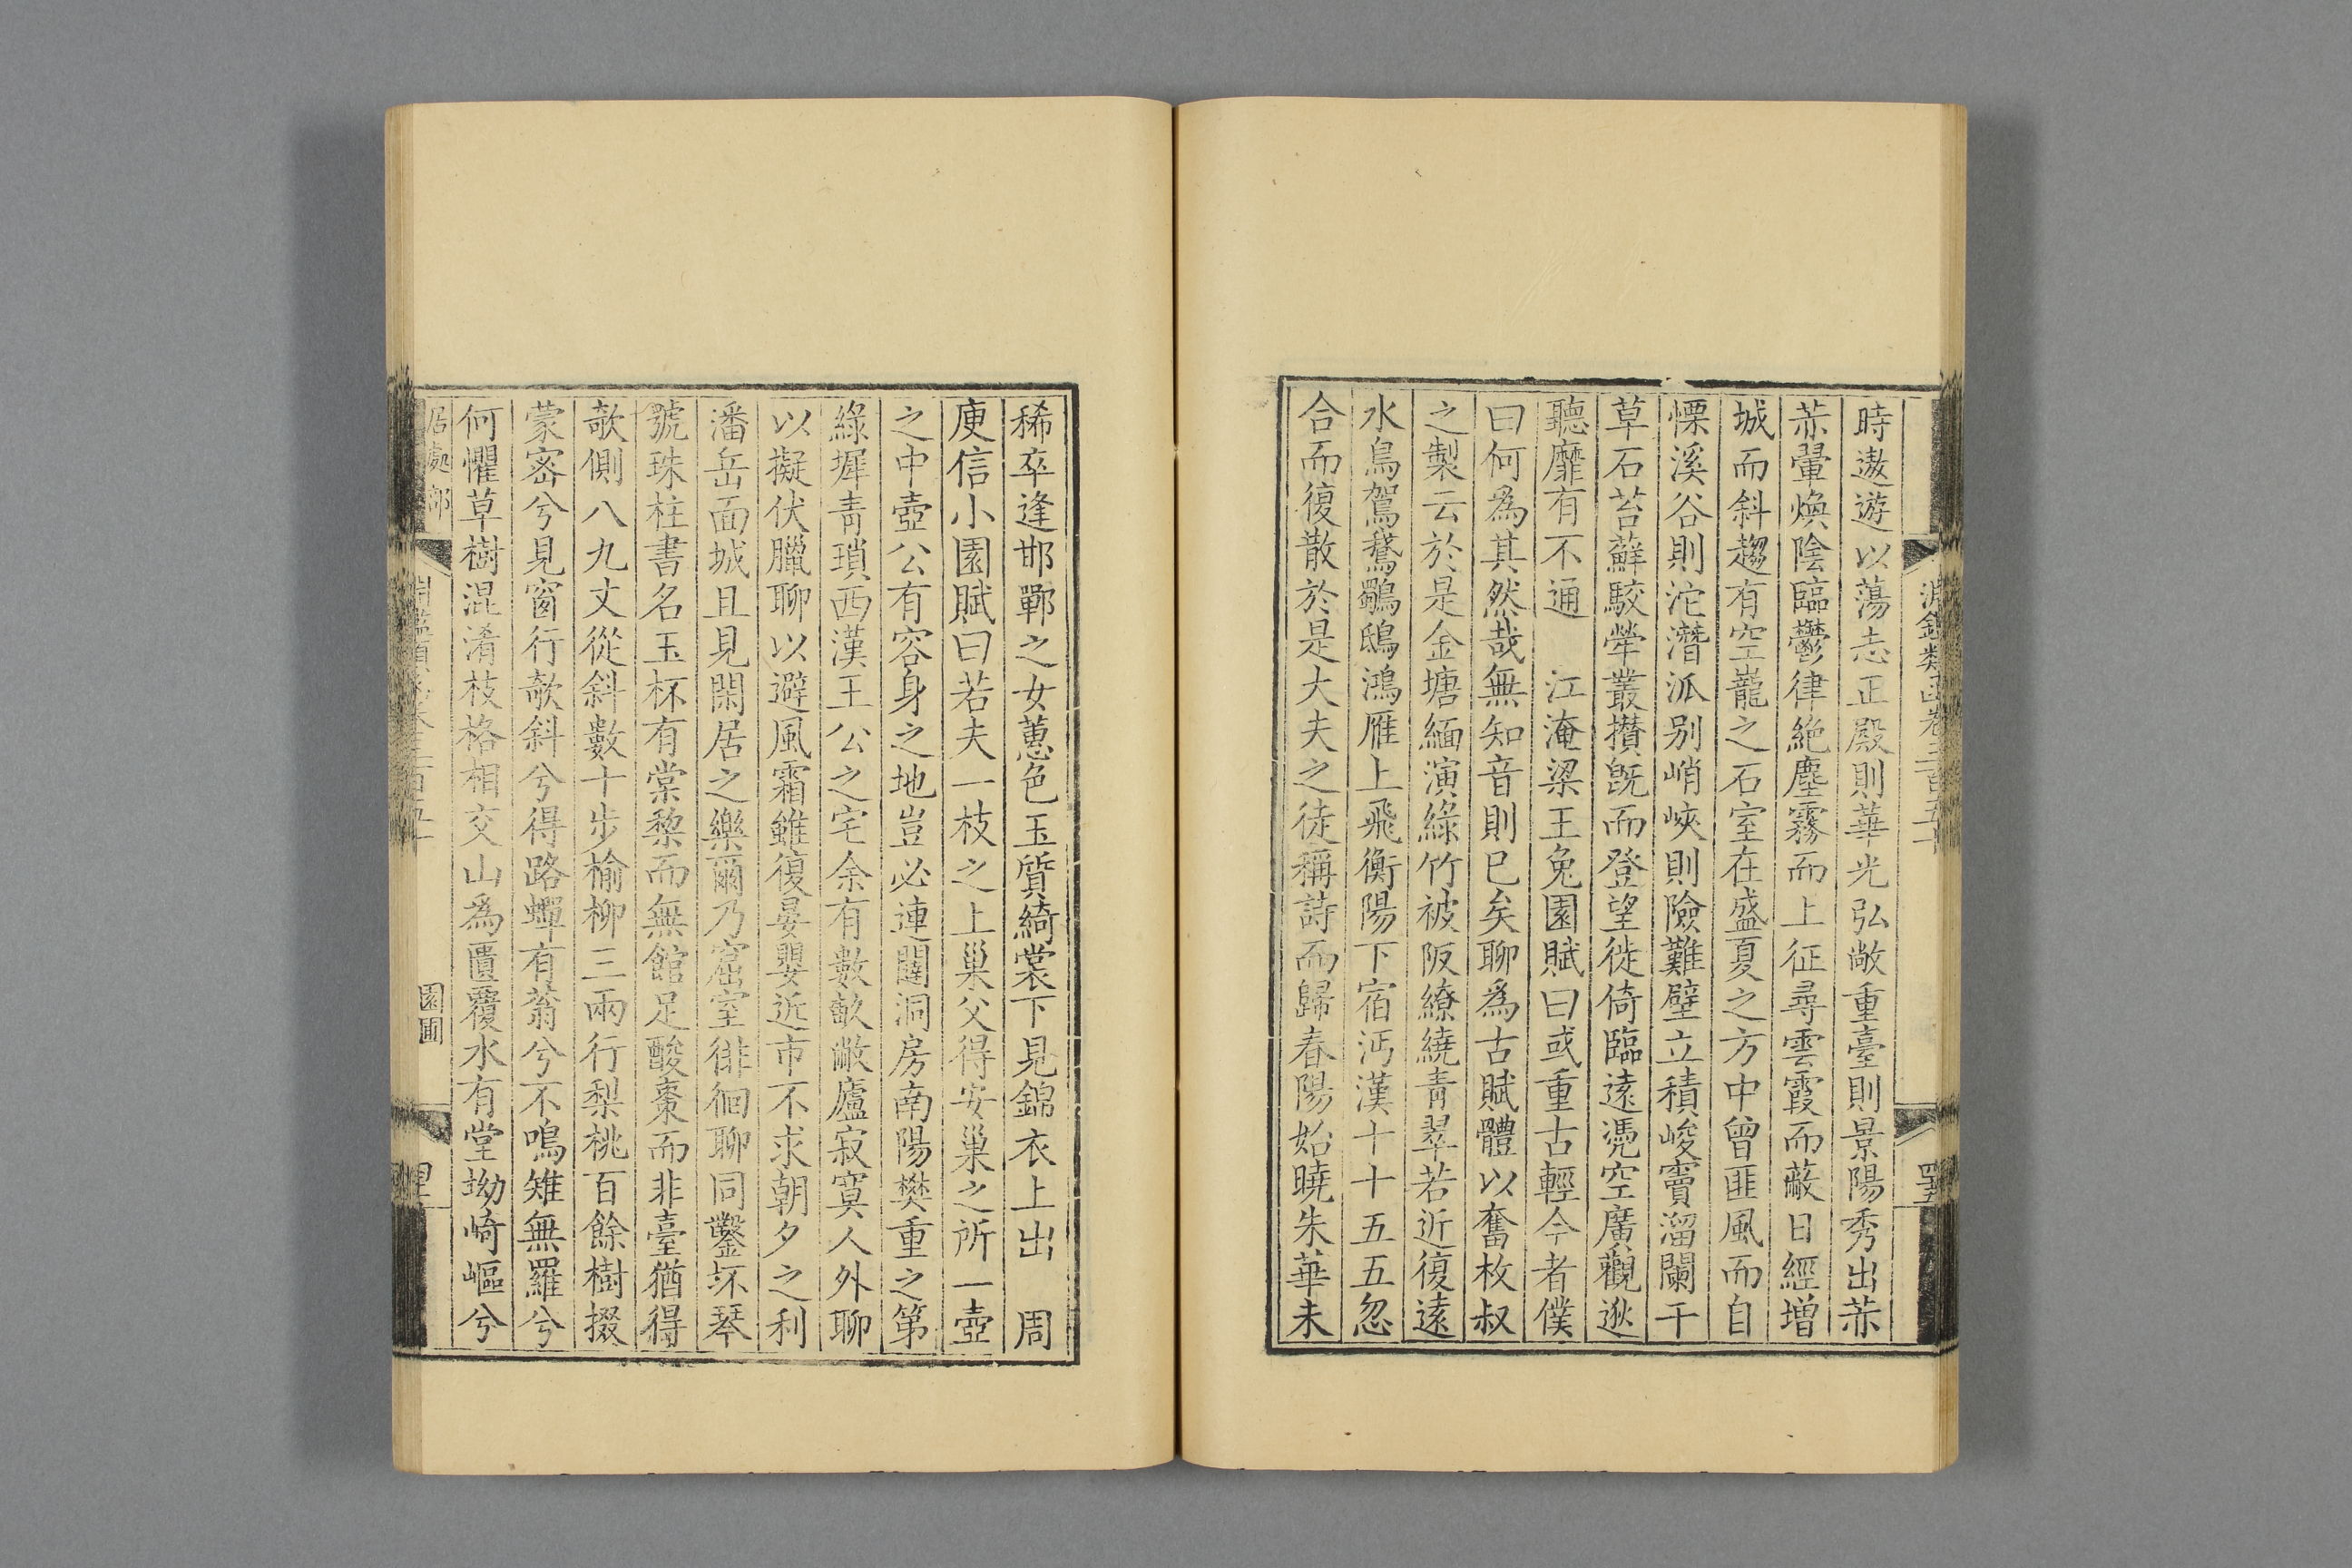 淵鑑類函卷三百五十
時遨遊以蕩志正殿則華光弘敞重臺則景陽秀出赤
赤暈煥陰臨鬱律絶塵霧而上征尋雲霞而蔽日經增
城而斜趨有空巃之石室在盛夏之方中曾匪風而自
慄溪谷則沱潛泒别峭峽則險難壁立積峻竇溜闌干
草石苔蘚駮犖叢攅旣而登望徙倚臨遠憑空廣觀逖
聽靡有不通　江淹梁王兔園賦曰或重古輕今者僕
曰何爲其然哉無知音則已矣聊爲古賦體以奮枚叔
之製云於是金塘緬演綠竹被阪繚繞青翠若近復遠
水鳥駕鵞鸀鴟鴻雁上飛衡陽下宿沔漢十十五五忽
合而復散於是大夫之徒稱詩而歸春陽始曉朱華未
稀卒逢邯鄲之女蕙色玉質綺裳下見錦衣上出　周
庾信小園賦曰若夫一枝之上巢父得安巢之所一壺
之中壺公有容身之地豈必連闥洞房南陽樊重之第
綠墀靑瑣西漢王公之宅余有數畝敝廬寂寞人外聊
以擬伏臘聊以避風霜雖復晏嬰近市不求朝夕之利
潘岳面城且見閑居之樂爾乃窟室徘徊聊同鑿坏琴
號珠柱書名玉杯有棠黎而無館足酸棗而非臺猶得
欹側八九丈從斜數十步榆柳三兩行梨桃百餘樹掇
蒙密兮見窗行欹斜兮得路蟬有蓊兮不鳴雉無羅兮
何懼草樹混淆枝格相交山爲匱覆水有堂坳崎嶇兮
居處部
園圃